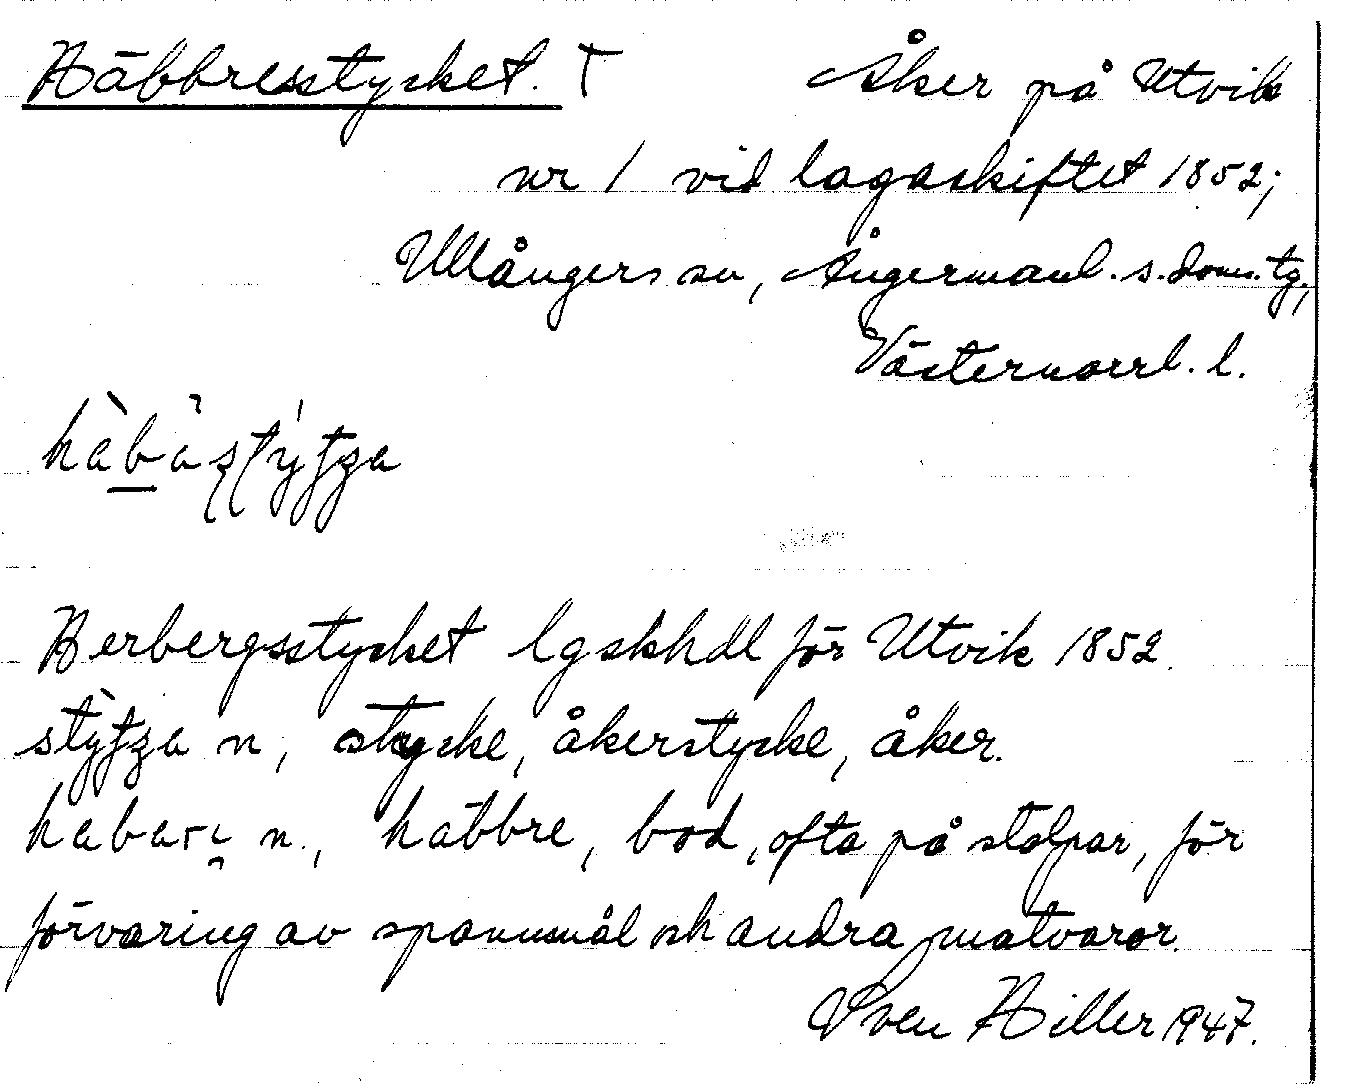 Häbbresstycket. † Åker på Utvik
nr 1 vid lagaskiftet 1852;
Ullångers sn, Ångermanl. s. doms. tg,
Västernorrl. l.
Herbergsstycket lgskhdl för Utvik 1852.
n, stycke, åkerstycke, åker.
n., häbbre, bod, ofta på stolpar, för
förvaring av spannmål och andra matvaror.
Sven Hiller 1947.